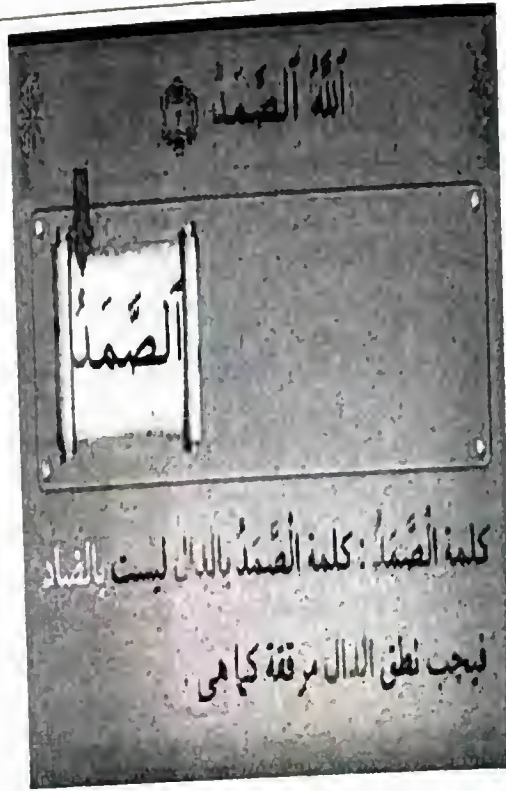 ٱللَّهُ ٱلصَّمَدُ ٢
ٱلصَّمَدُ
كلمة الصَّمَدُ : كلمة الصَّمَدُ بالدال ليست بالضاد
فيجب نطق الدال مرققة كما هى .